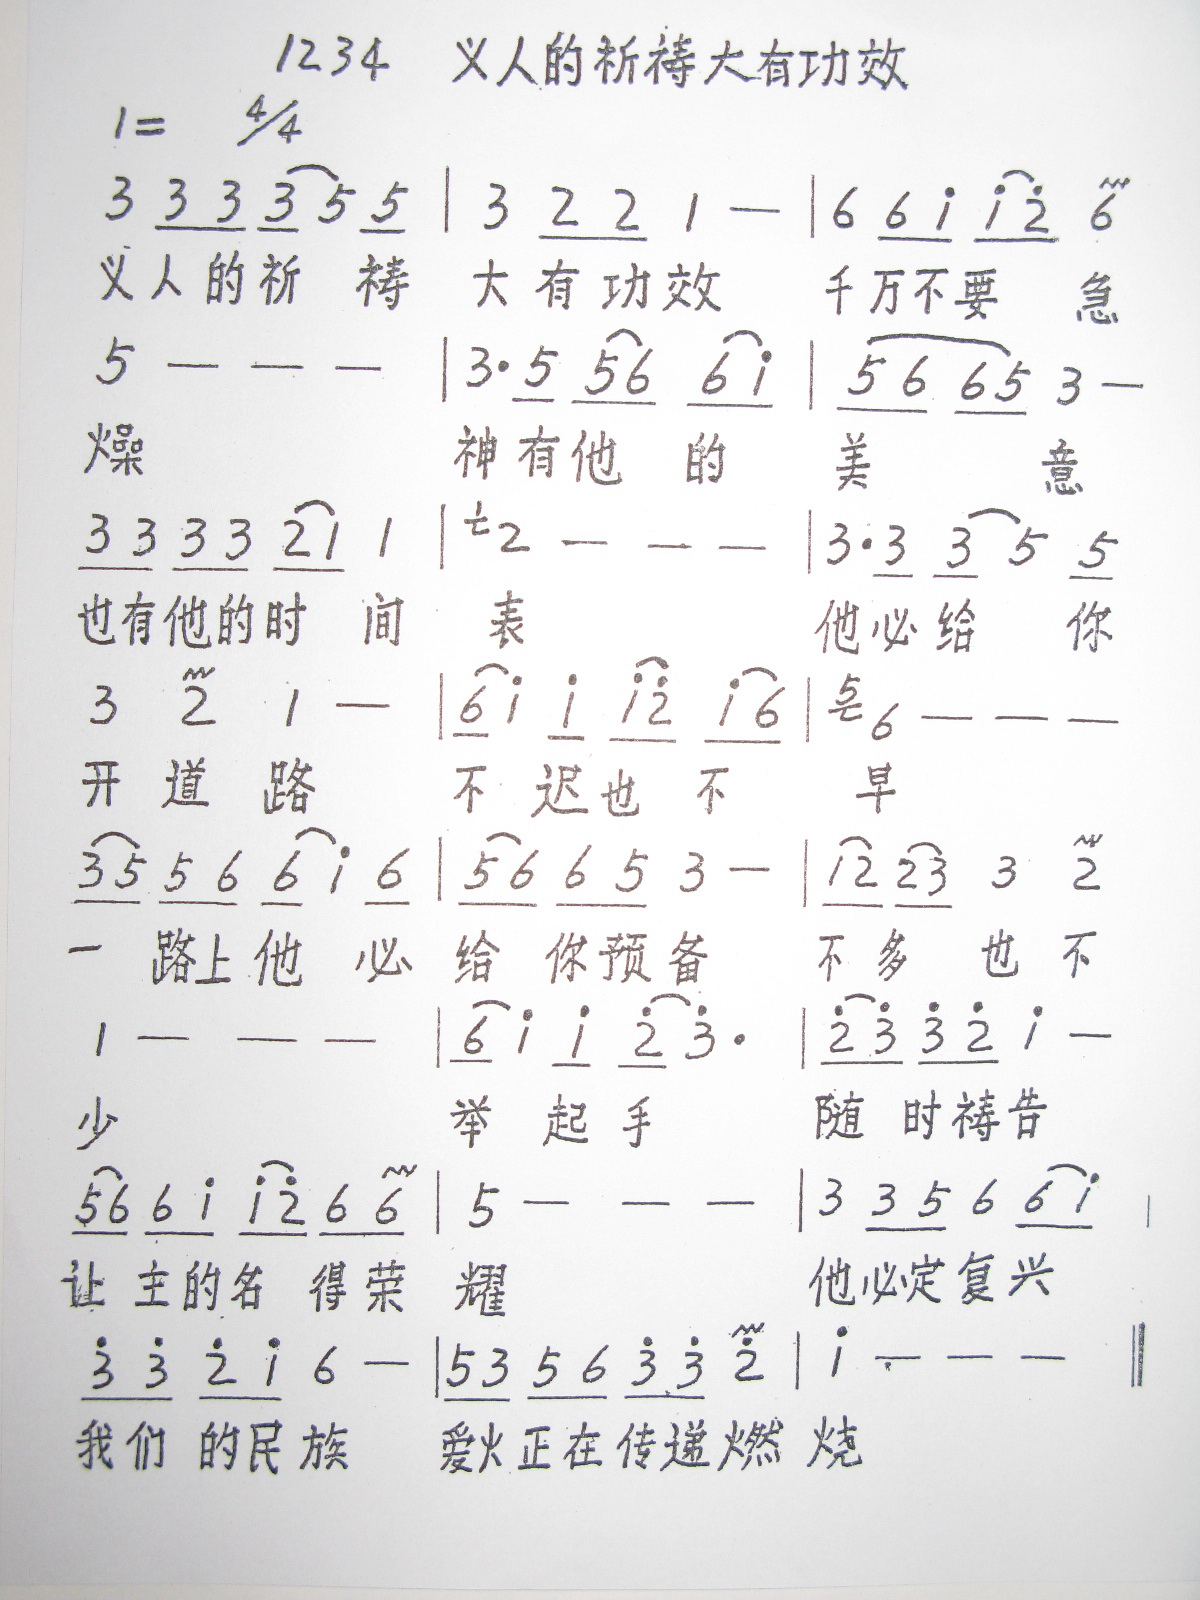 1234 义人的祈祷大有功效
1= 4/4
3 3 3 3 5 5 | 3 2 2 1 — | 6 6 i i 2̇ 6
义人的祈 祷 大有功效 千万不要 急
5 — — — | 3· 5 5 6 6 i | 5 6 6 5 3 —
燥 神有他 的 美 意
3 3 3 3 2 1 1 | 1 2 — — — | 3· 3 3 5 5
也有他的时 间 表 他必给 你
3 2 1 — | 6 i i i 2̇ i 6 | 5 6 — — —
开 道 路 不 迟也 不 早
3 5 5 6 6 i 6 | 5 6 6 5 3 — | 1 2 2 3 3 2
一 路上他 必 给 你预备 不多 也不
1 — — — | 6 i i 2̇ 3̇· | 2̇ 3̇ 3̇ 2̇ i —
少 举 起 手 随 时祷告
5 6 6 i i 2̇ 6 6 | 5 — — — | 3 3 5 6 6 i |
让 主的名 得荣 耀 他必定复兴
3̇ 3̇ 2̇ i 6 — | 5 3 5 6 3̇ 3̇ 2̇ | i — — — ‖
我们 的民族 爱火正在传递燃 烧